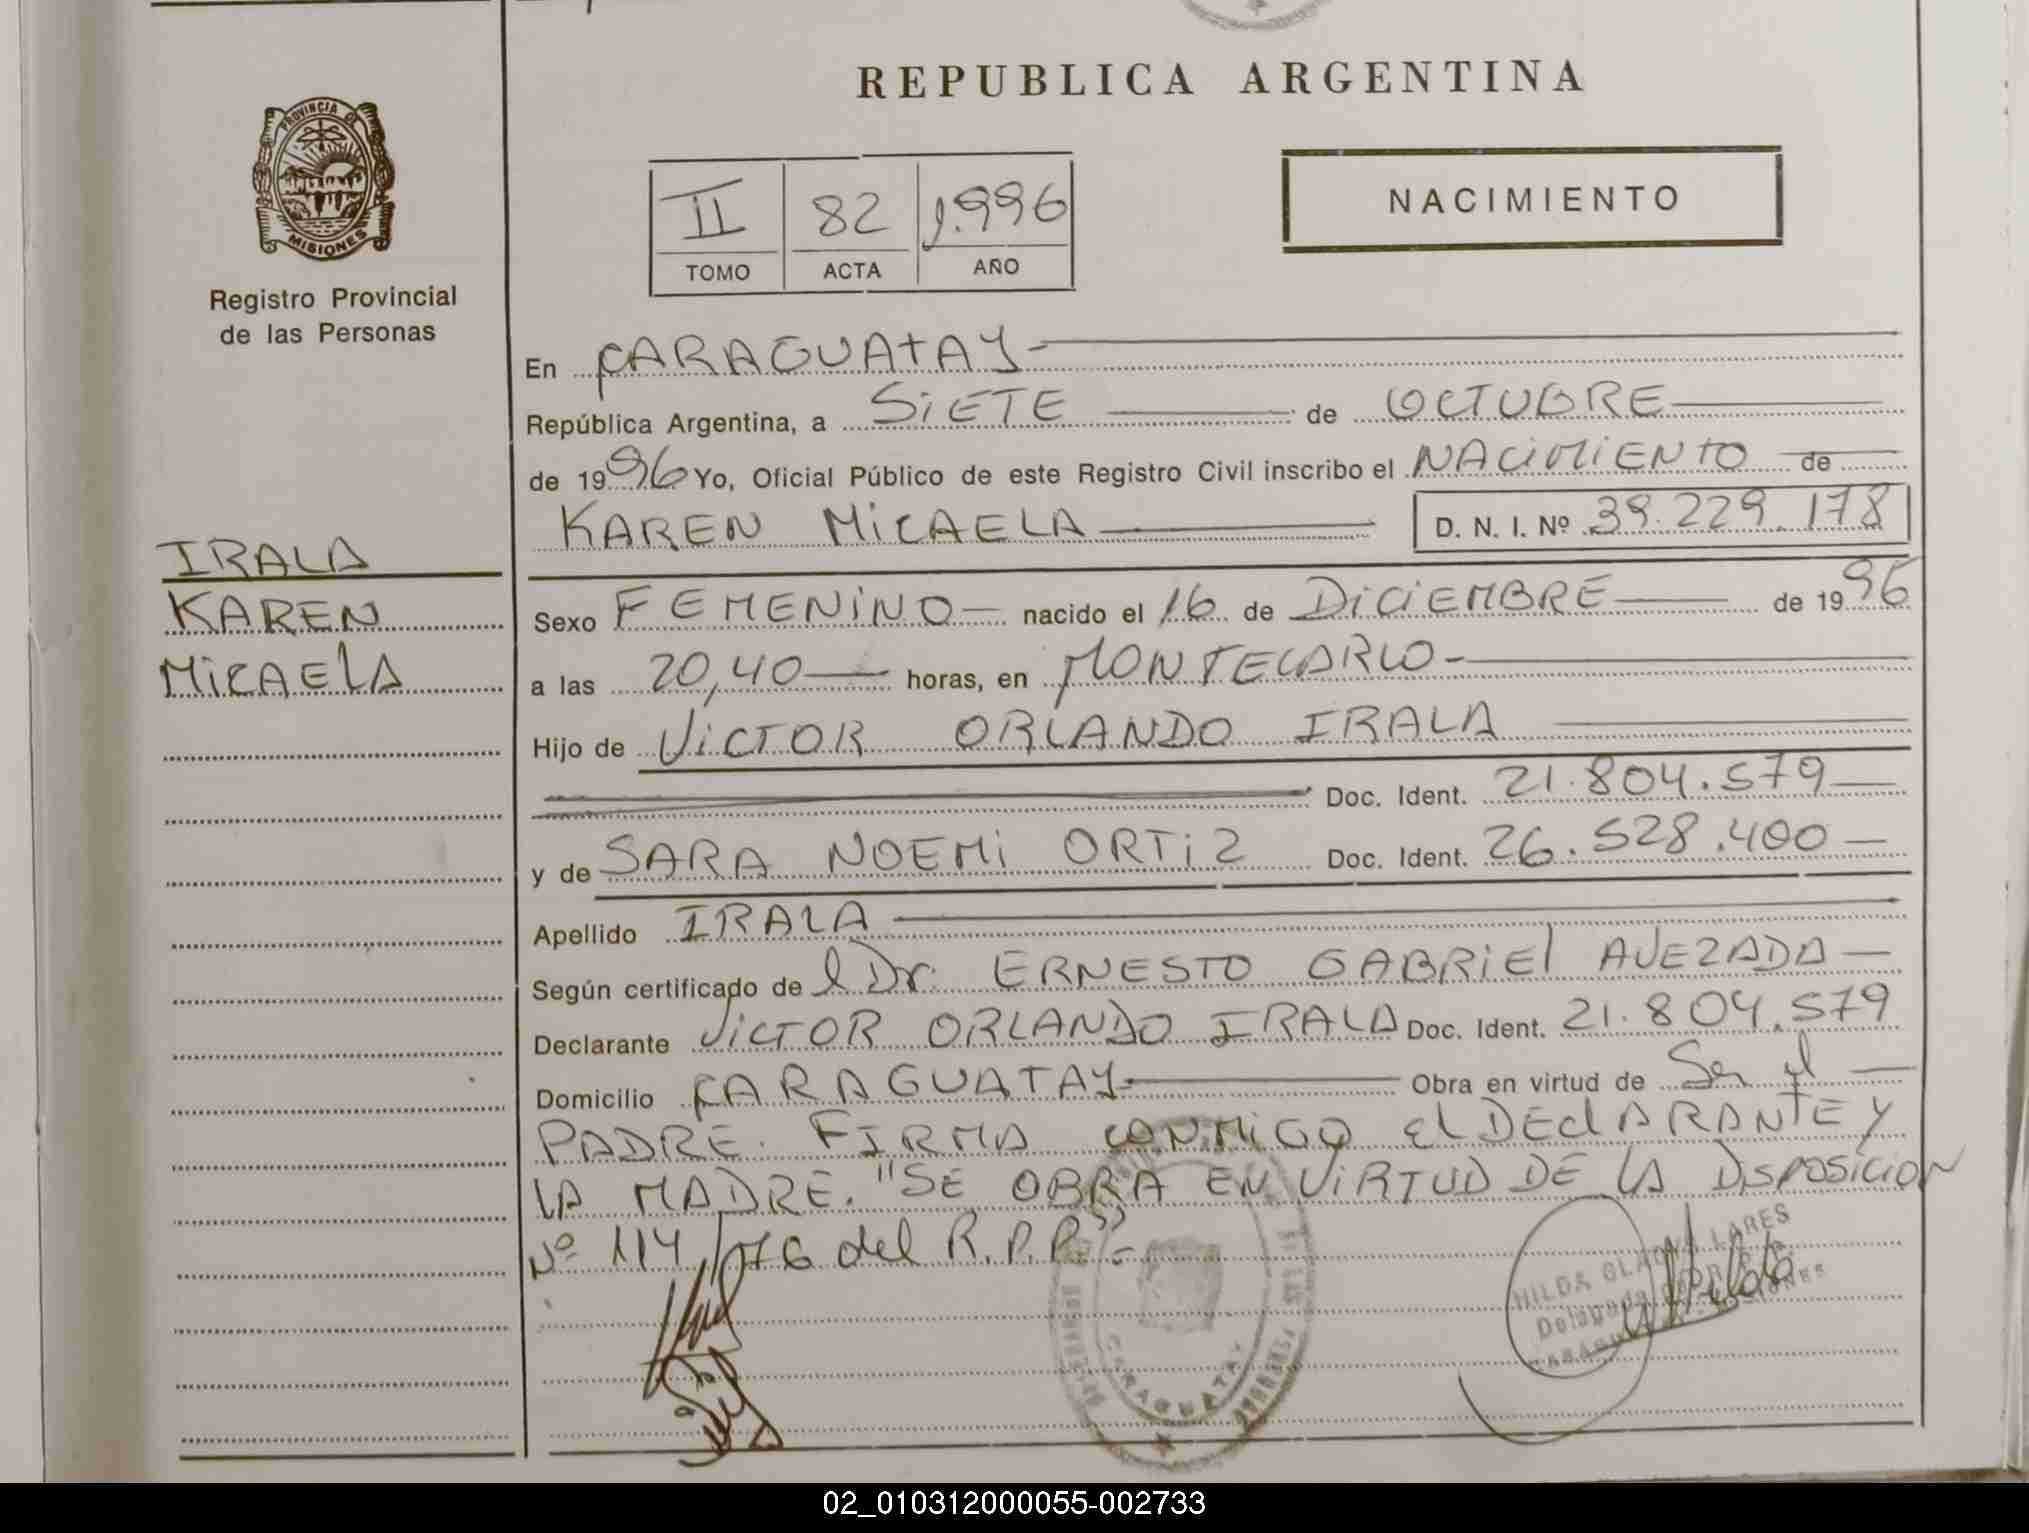 REPUBLICA ARGENTINA
PROVINCIA DE
MISIONES
Registro Provincial
de las Personas
II 82 1.996
TOMO ACTA AÑO
NACIMIENTO
En CARAGUATAY
República Argentina, a SiETE de OCTUBRE
de 1996 Yo, Oficial Público de este Registro Civil inscribo el NACiMiENTO de
KAREN MiCAELA D. N. I. Nº 39.229.178
IRALA
KAREN
MiCAELA
Sexo FEMENiNO nacido el 16 de DiCiEMBRE de 1995
a las 20,40 horas, en MONTECARLO
Hijo de ViCTOR ORLANDO IRALA
Doc. Ident. 21.804.579
y de SARA NOEMi ORTiZ Doc. Ident. 26.528.400
Apellido IRALA
Según certificado de l Dr. ERNESTO GABRiEl AVEZADA
Declarante ViCTOR ORLANDO IRALA Doc. Ident. 21.804.579
Domicilio CARAGUATAY Obra en virtud de Ser el
PADRE. FIRMA CONMiGO El DEClARANTE Y
LA MADRE. "SE OBRA EN ViRTUD DE LA DiSPOSiCiON
Nº 114/76 del R.P.P."-
HILDA GLADYS LARES
Delegada
CARAGUATAY
02_010312000055-002733